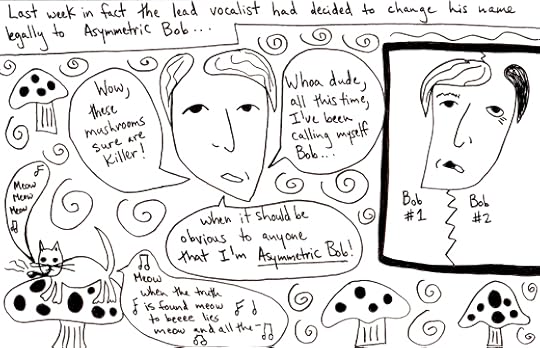 Last week in fact the lead vocalist had decided to change his name
legally to Asymmetric Bob...
Wow,
these
mushrooms
sure are
killer!
Whoa dude,
all this time,
I've been
calling myself
Bob...
when it should be
obvious to anyone
that I'm Asymmetric Bob!
Bob
#1
Bob
#2
Meow
Meow
Meow
Meow
when the truth
is found meow
to beeee lies
meow and all the-